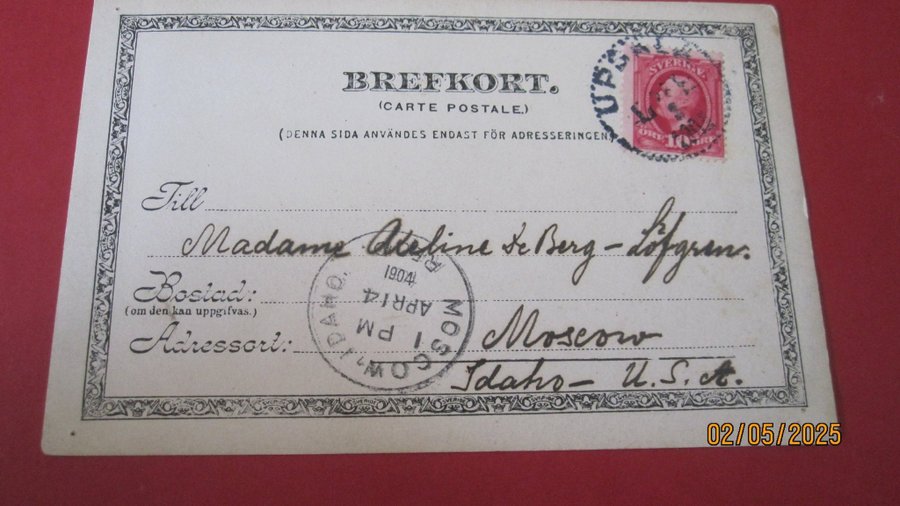 BREFKORT.
(CARTE POSTALE.)
(DENNA SIDA ANVÄNDES ENDAST FÖR ADRESSERINGEN
UPSALA
SVERIGE
ÖRE 10 ÖRE
Till
Madame Aveline De Berg - Löfgren.
Bostad:
(om den kan uppgifvas.)
Adressort:
Moscow
Idaho - U.S.A.
MOSCOW, IDAHO.
1 PM
APR 14
1904
02/05/2025